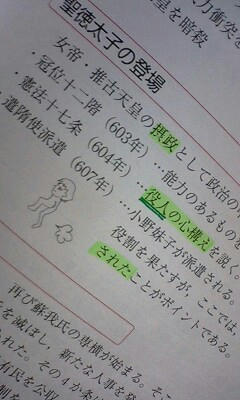 力衝突を
皇を暗殺
聖徳太子の登場
女帝・推古天皇の摂政として政治の
・冠位十二階（603年）…能力のあるものを
・憲法十七条（604年）…役人の心構えを説く。
・遣隋使派遣（607年）…小野妹子が派遣される。
役割を果たすが、ここでは、
されたことがポイントである。
再び蘇我氏の専横が始まる。そこ
を滅ぼし、新たな人事を発
された。その4か条
有民を公収